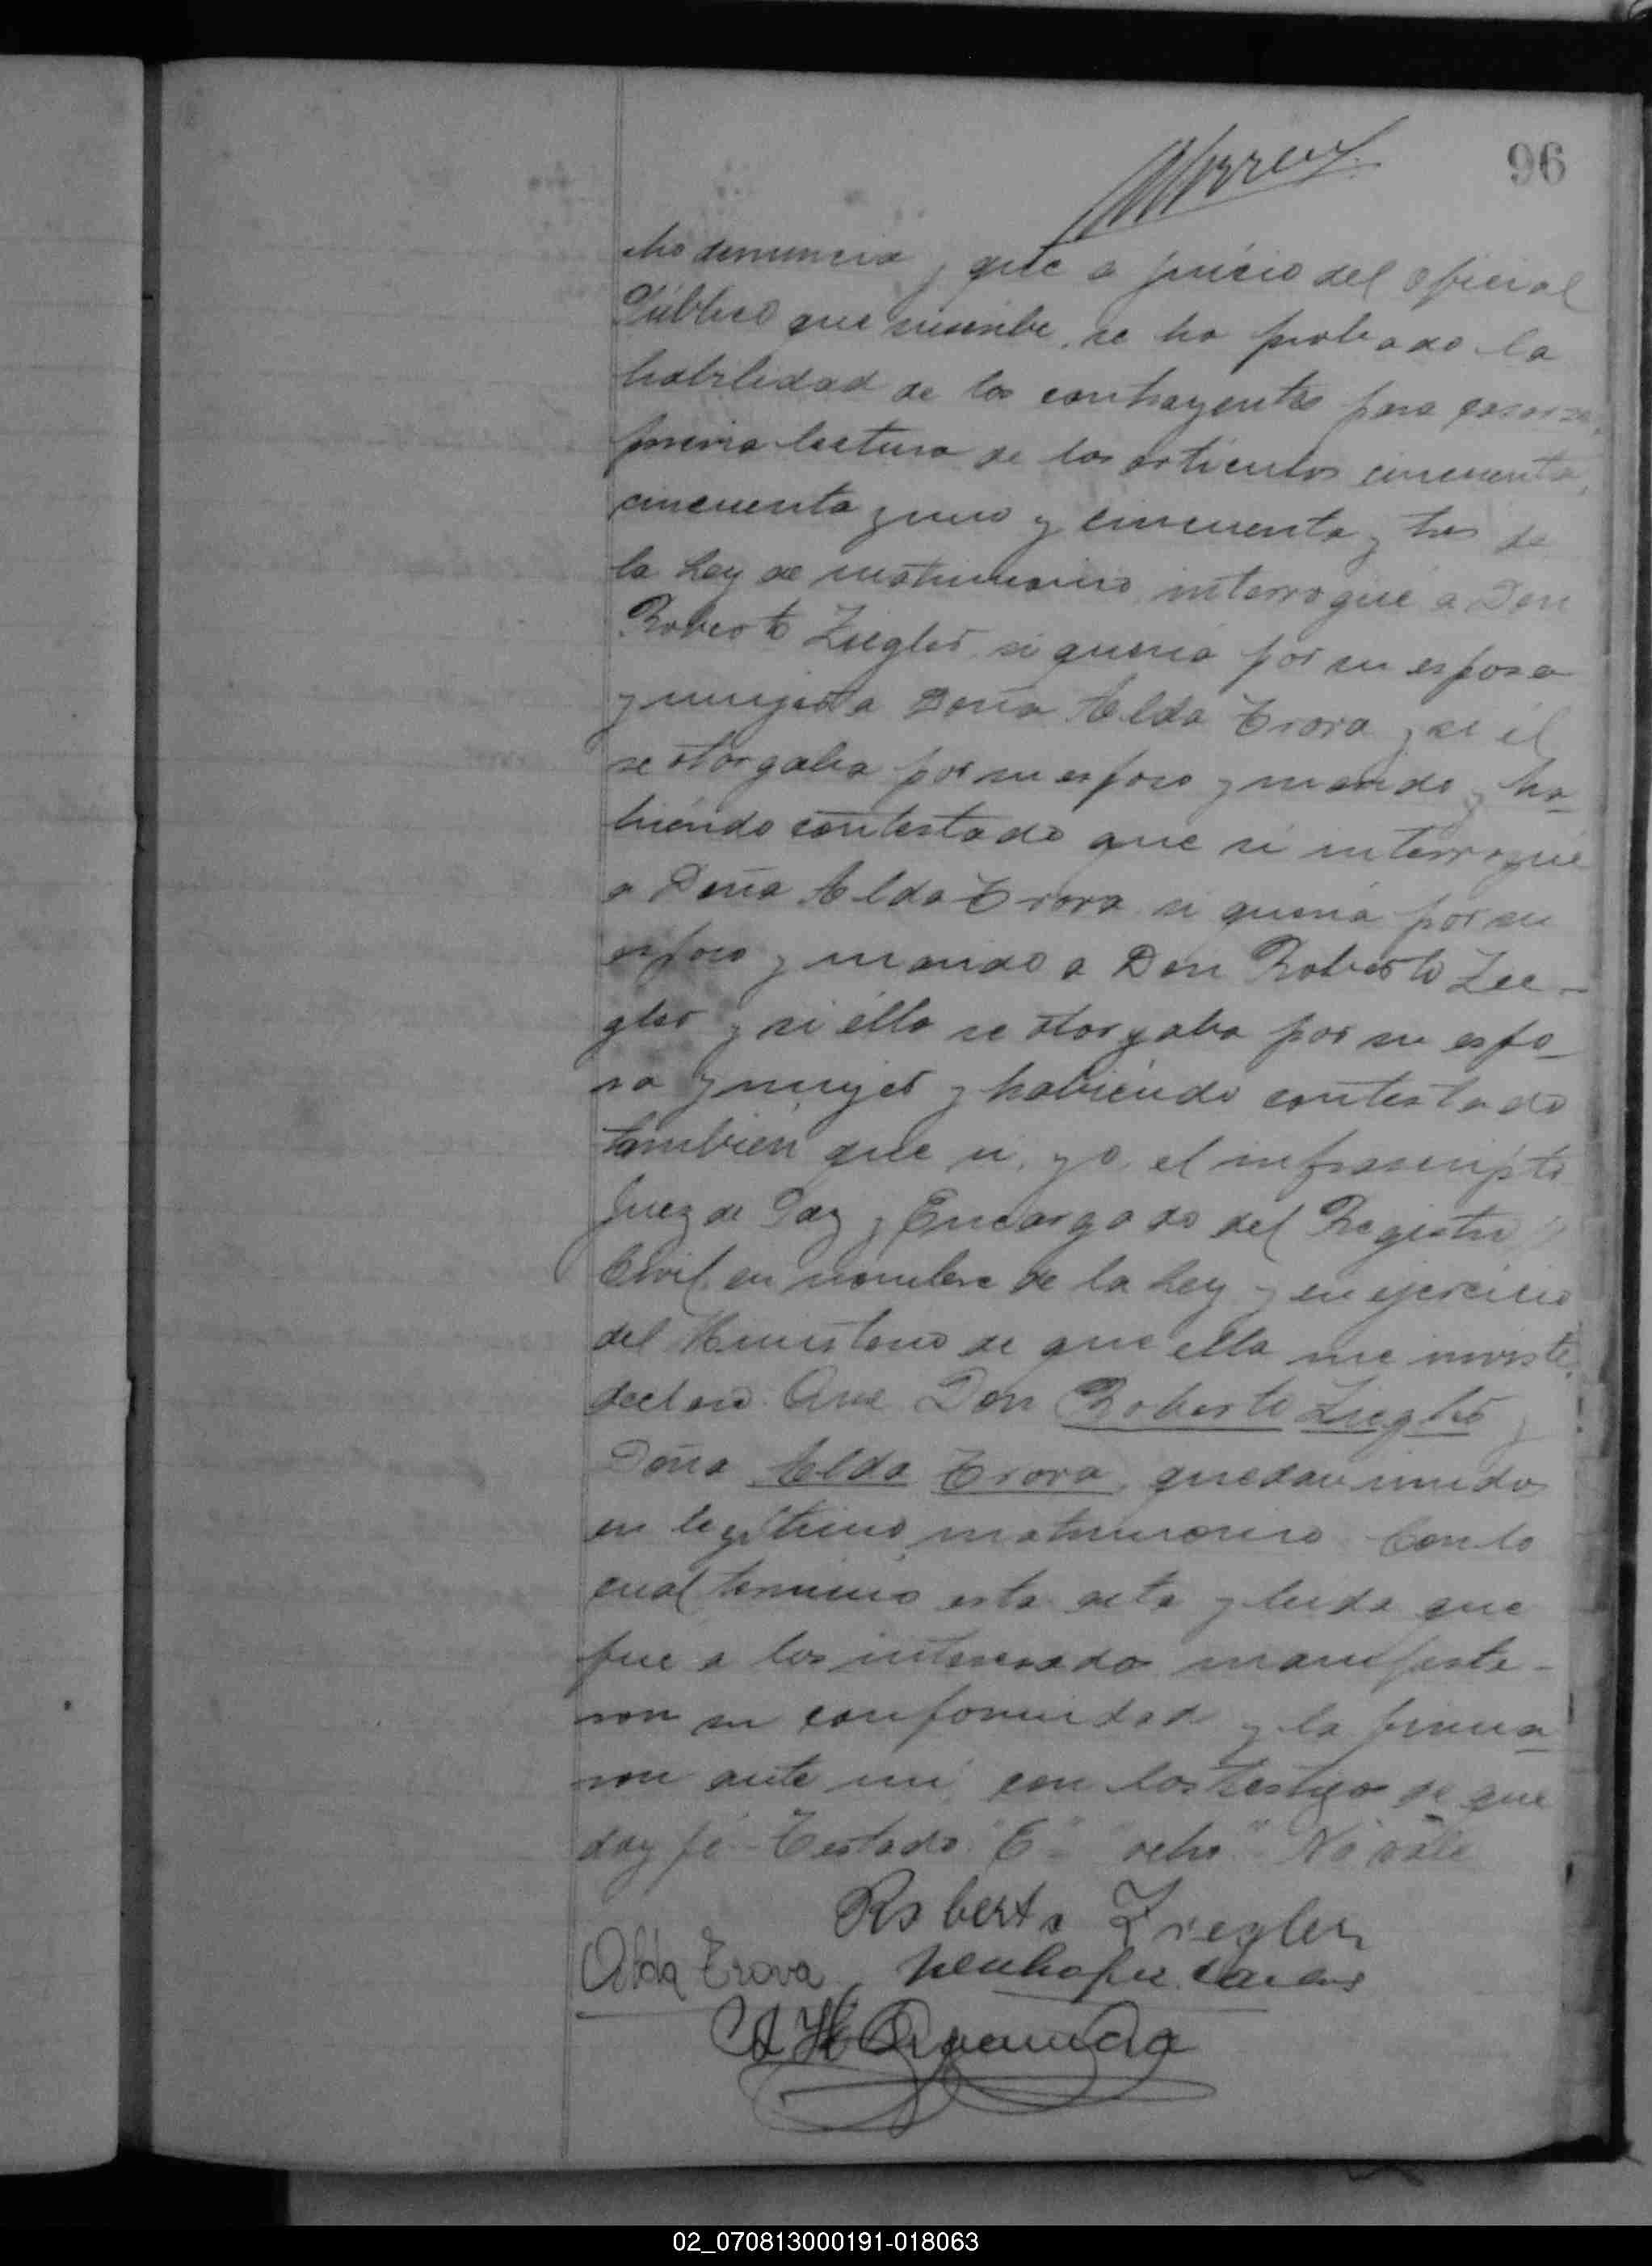 96
cho denuncia y que a juicio del oficial
Público que suscribe, se ha probado la
habilidad de los contrayentes para casarse,
previa lectura de los artículos cincuenta,
cincuenta y uno y cincuenta y tres de
la Ley de matrimonio, interrogué a Don
Roberto Ziegler si quería por su esposa
y mujer a Doña Alda Trova y si él
se otorgaba por su esposo y marido y ha-
biendo contestado que si interrogué
a Doña Alda Trova si quería por su
esposo y marido a Don Roberto Zie-
gler y si ella se otorgaba por su espo-
sa y mujer y habiendo contestado
también que si, yo, el infrascripto
Juez de Paz y Encargado del Registro
Civil, en nombre de la Ley y en ejercicio
del Ministerio de que ella me inviste,
declaro: Que Don Roberto Ziegler y
Doña Alda Trova, quedan unidos
en legítimo matrimonio. Con lo
cual terminó esta acta y leida que
fue a los interesados manifesta-
ron su conformidad y la firma-
ron ante mí, con los testigos de que
doy fé - Testado "E" "ocho" No vale
Roberto Ziegler
Alda Trova
02_070813000191-018063